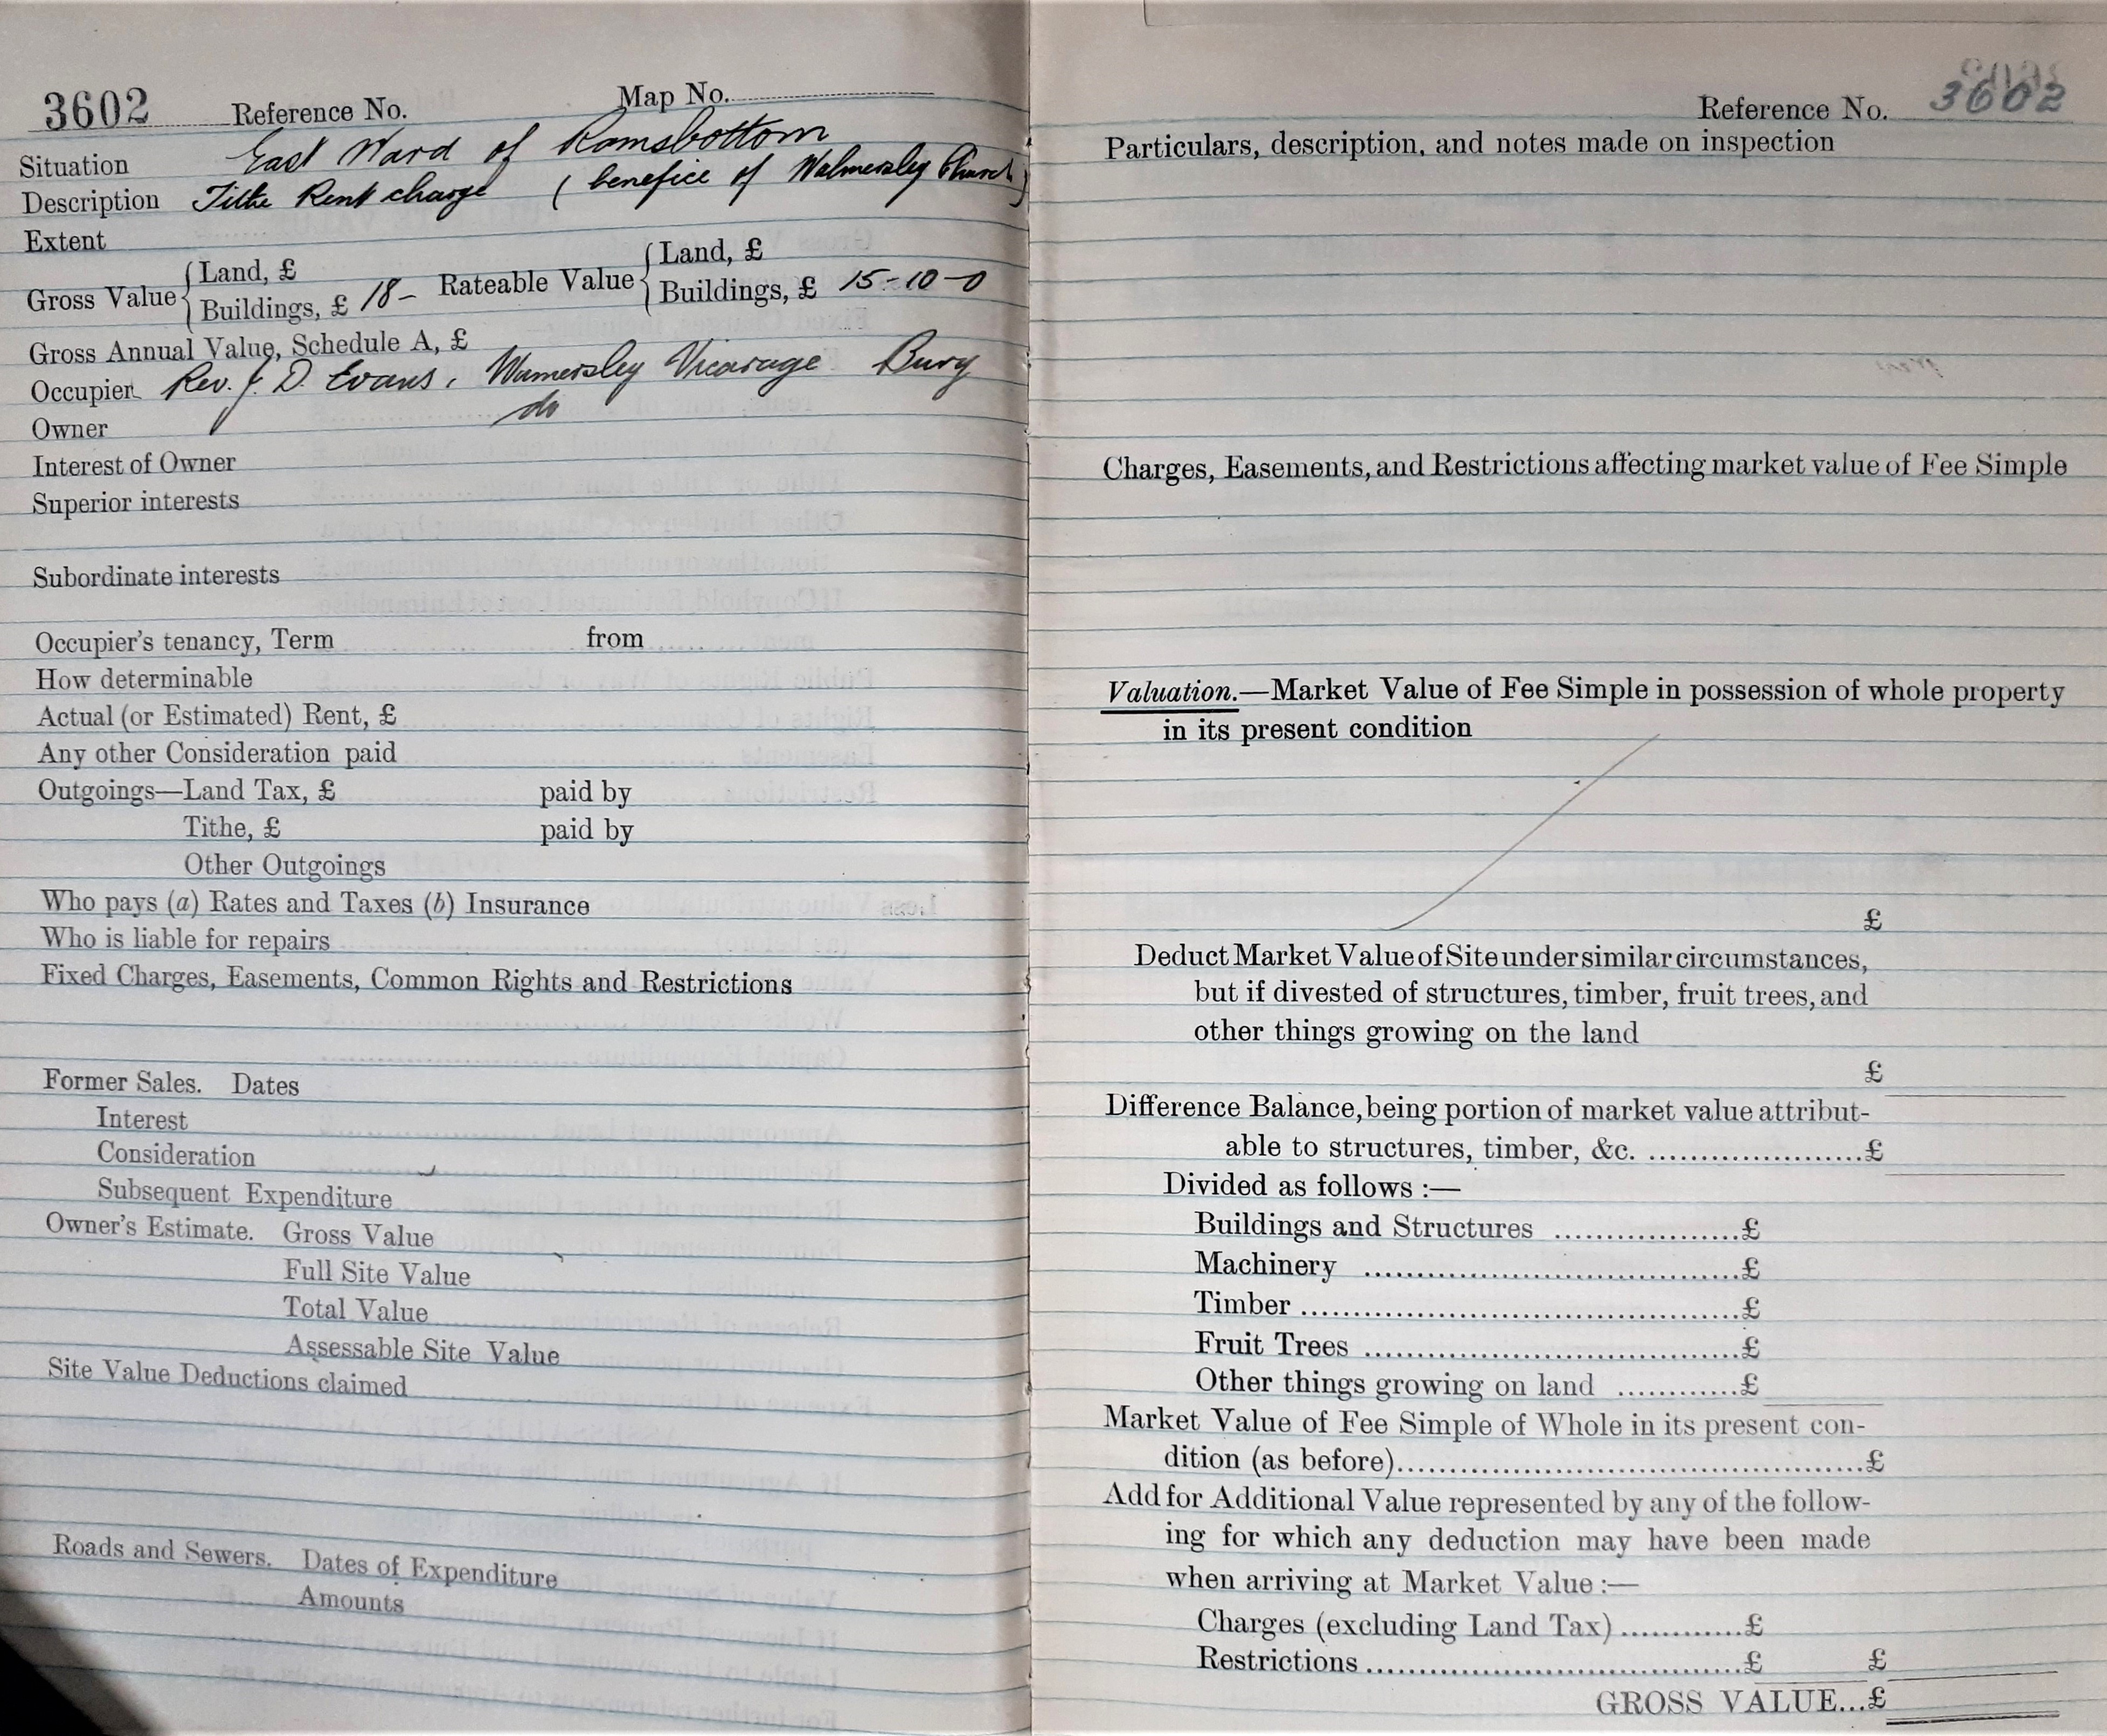 3602 Reference No. Map No.
Situation East Ward of Ramsbottom
Description Tithe Rent charge ( benefice of Walmersley Church )
Extent
Gross Value { Land, £
Buildings, £ 18 - Rateable Value { Land, £
Buildings, £ 15 - 10 - 0
Gross Annual Value, Schedule A, £
Occupier Rev. J. D. Evans, Wamersley Vicarage Bury
Owner do
Interest of Owner
Superior interests
Subordinate interests
Occupier's tenancy, Term from
How determinable
Actual (or Estimated) Rent, £
Any other Consideration paid
Outgoings—Land Tax, £ paid by
Tithe, £ paid by
Other Outgoings
Who pays (a) Rates and Taxes (b) Insurance
Who is liable for repairs
Fixed Charges, Easements, Common Rights and Restrictions
Former Sales. Dates
Interest
Consideration
Subsequent Expenditure
Owner's Estimate. Gross Value
Full Site Value
Total Value
Assessable Site Value
Site Value Deductions claimed
Roads and Sewers. Dates of Expenditure
Amounts
Reference No. 3602
Particulars, description, and notes made on inspection
Charges, Easements, and Restrictions affecting market value of Fee Simple
Valuation.—Market Value of Fee Simple in possession of whole property
in its present condition
£
Deduct Market Value of Site under similar circumstances,
but if divested of structures, timber, fruit trees, and
other things growing on the land
£
Difference Balance, being portion of market value attribut-
able to structures, timber, &c. ......................£
Divided as follows :—
Buildings and Structures ...................£
Machinery ......................................£
Timber ...........................................£
Fruit Trees ......................................£
Other things growing on land ............£
Market Value of Fee Simple of Whole in its present con-
dition (as before)................................................£
Add for Additional Value represented by any of the follow-
ing for which any deduction may have been made
when arriving at Market Value :—
Charges (excluding Land Tax) ............£
Restrictions ......................................£ £
GROSS VALUE...£